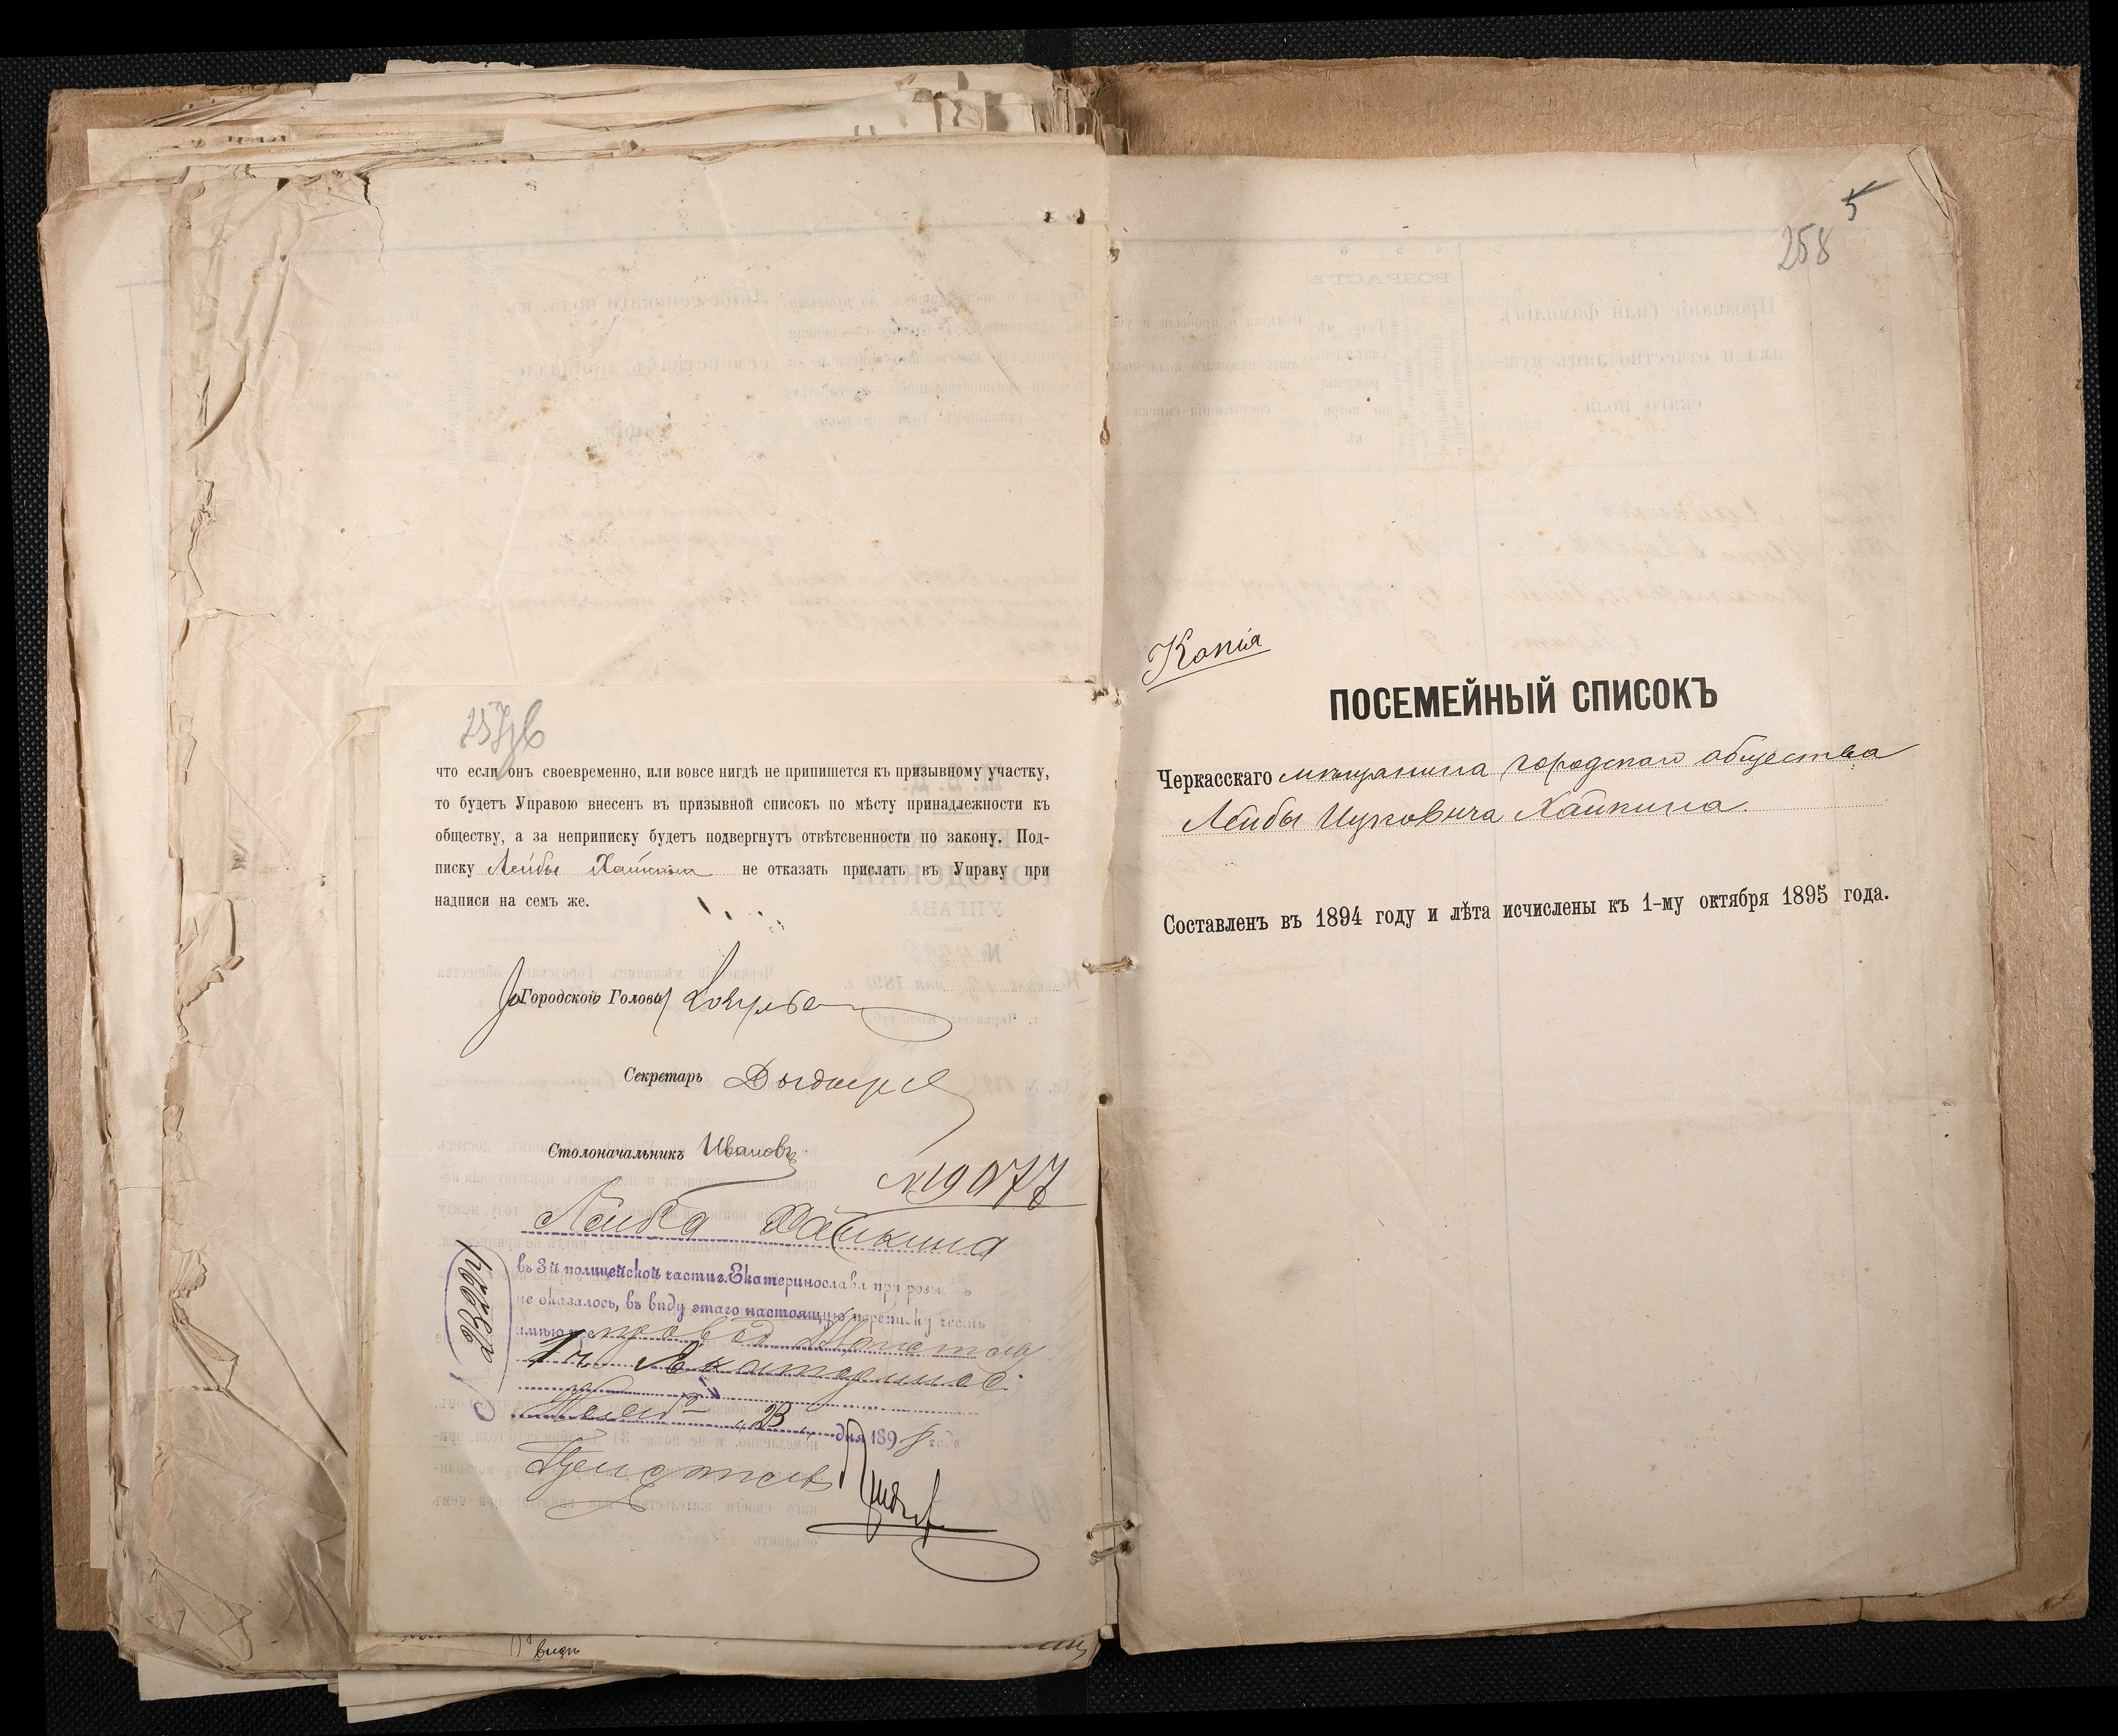 257об
что если онъ своевременно, или вовсе нигдѣ не припишется къ призывному участку,
то будетъ Управою внесенъ въ призывной списокъ по мѣсту принадлежности къ
обществу, а за неприписку будетъ подвергнутъ отвѣтсвенности по закону. Под-
писку Лейбы Хайкина не отказать прислать въ Управу при
надписи на семъ же.
Городской Голова
Секретарь
Столоначальникъ Ивановъ
№ 19077
Лейба Хайкина
въ 3й полицейской части г. Екатеринослава при розы
не оказалось, въ виду этаго настоящую переписку честь
имѣю препровод Приставу
1 ч Екатеринос.
Нояб 23 дня 1898 года
Приставъ
5
258
Копія
ПОСЕМЕЙНЫЙ СПИСОКЪ
Черкасскаго мѣщанина городского общества
Лейбы Ицковича Хайкина.
Составленъ въ 1894 году и лѣта исчислены къ 1-му октября 1895 года.